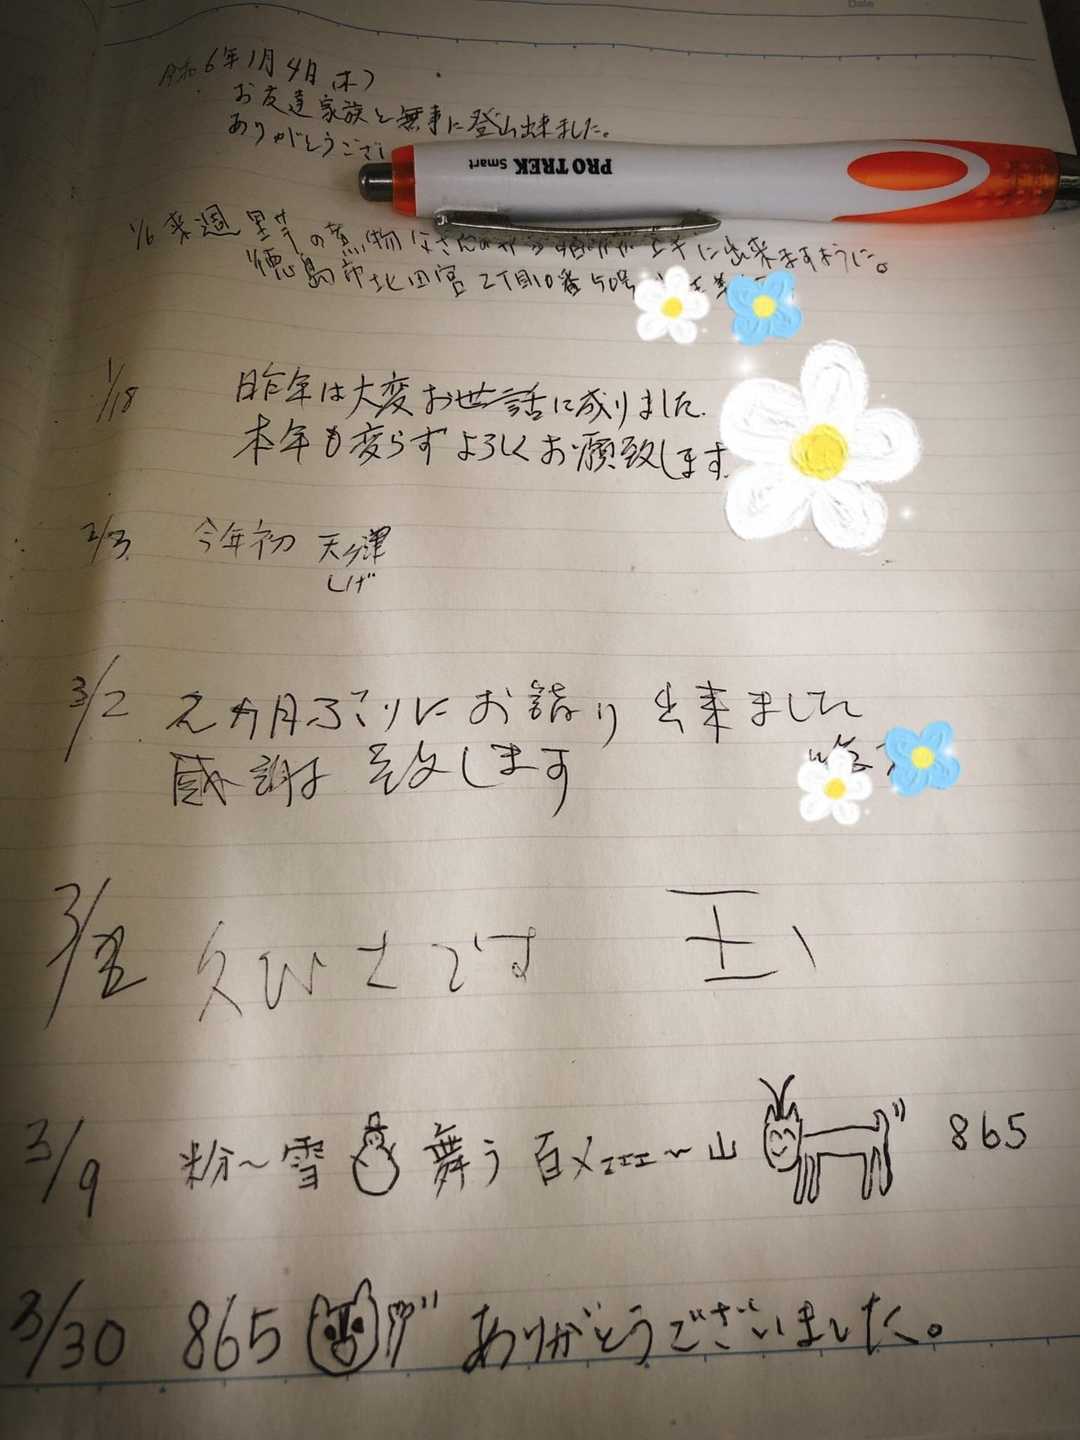 Date
令和6年1月4日(木)
お友達家族と無事に登山出来ました。
ありがとうござ
PRO TREK Smart
1/6 来週 里芋の煮物 が上手に出来ますように。
徳島市北田宮2丁目10番50号
1/18 昨年は大変お世話に成りました.
本年も変らずよろしくお願致します.
2/3 今年初 天ヶ津
しげ
3/2 2カ月ぶりにお詣り出来ました
感謝は致します
3/2 久びさです 玉い
3/9 粉〜雪 舞う 百メェェェ〜山 865
3/30 865 ありがとうございました。